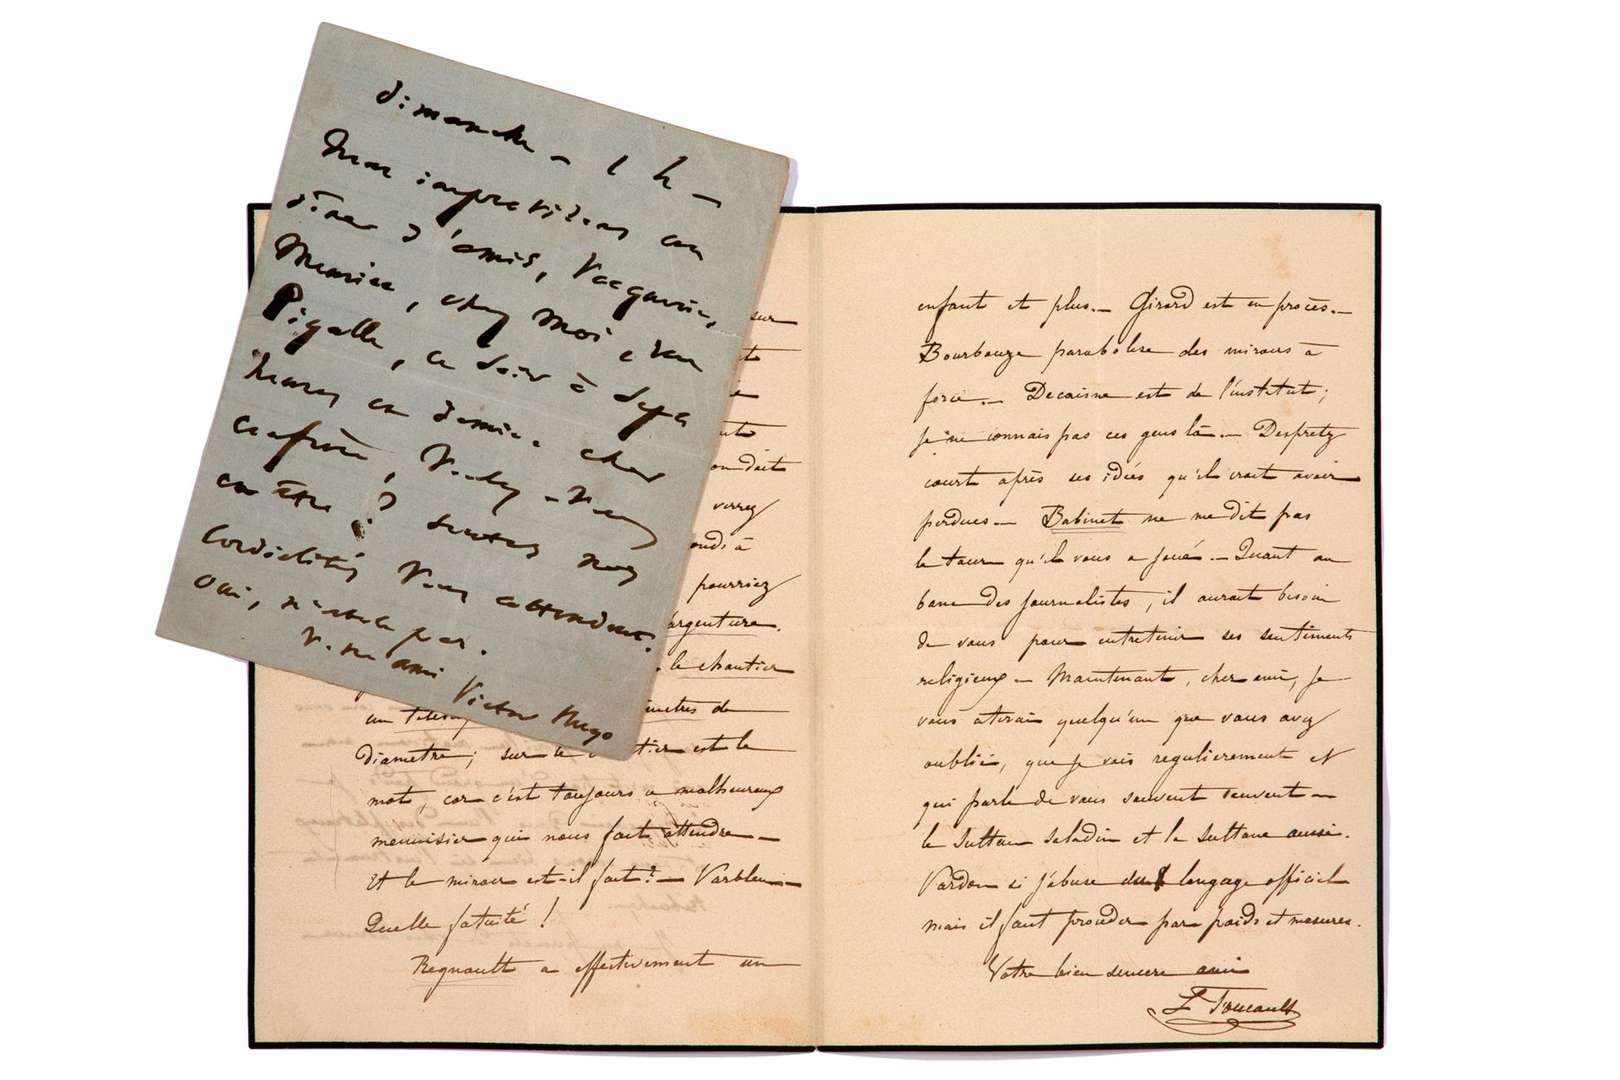 dimanche – 1 h –
nous improvisons un
dîner d'amis, Vacquerie,
Meurice, chez moi rue
Pigalle, ce soir à sept
heures en demie cher
confrère, Voulez-vous
en être ? toutes nos
cordialités vous attendent.
oui, n'est-ce pas.
V. re ami
Victor Hugo
sur
ondait
verrez
pourriez
argenture.
le chantier
un mètres de
diametre; sur le est le
mot, car c'est toujours ce malheureux
menuisier qui nous fait attendre –
Et le miroir est-il fait? – Parbleu –
Quelle fatuité !
Regnault a effectivement un
enfant et plus. – Girard est en procès. –
Bourbouze parabolise des miroirs à
force. – Decaisne est de l'institut;
je ne connais pas ces gens là. – Despretz
court après ses idées qu'il croit avoir
perdues – Babinet ne me dit pas
le tour qu'il vous a joué. – Quant au
banc des journalistes, il aurait besoin
de vous pour entretenir ses sentiments
religieux – Maintenant, cher ami, je
vous dirai quelqu'un que vous avez
oublié, que je vois regulierement et
qui parle de vous souvent souvent –
le sultan saladin et la sultane aussi.
Pardon si j'abuse du langage officiel
mais il faut proceder par poids et mesures.
Votre bien sincere ami
L Foucault